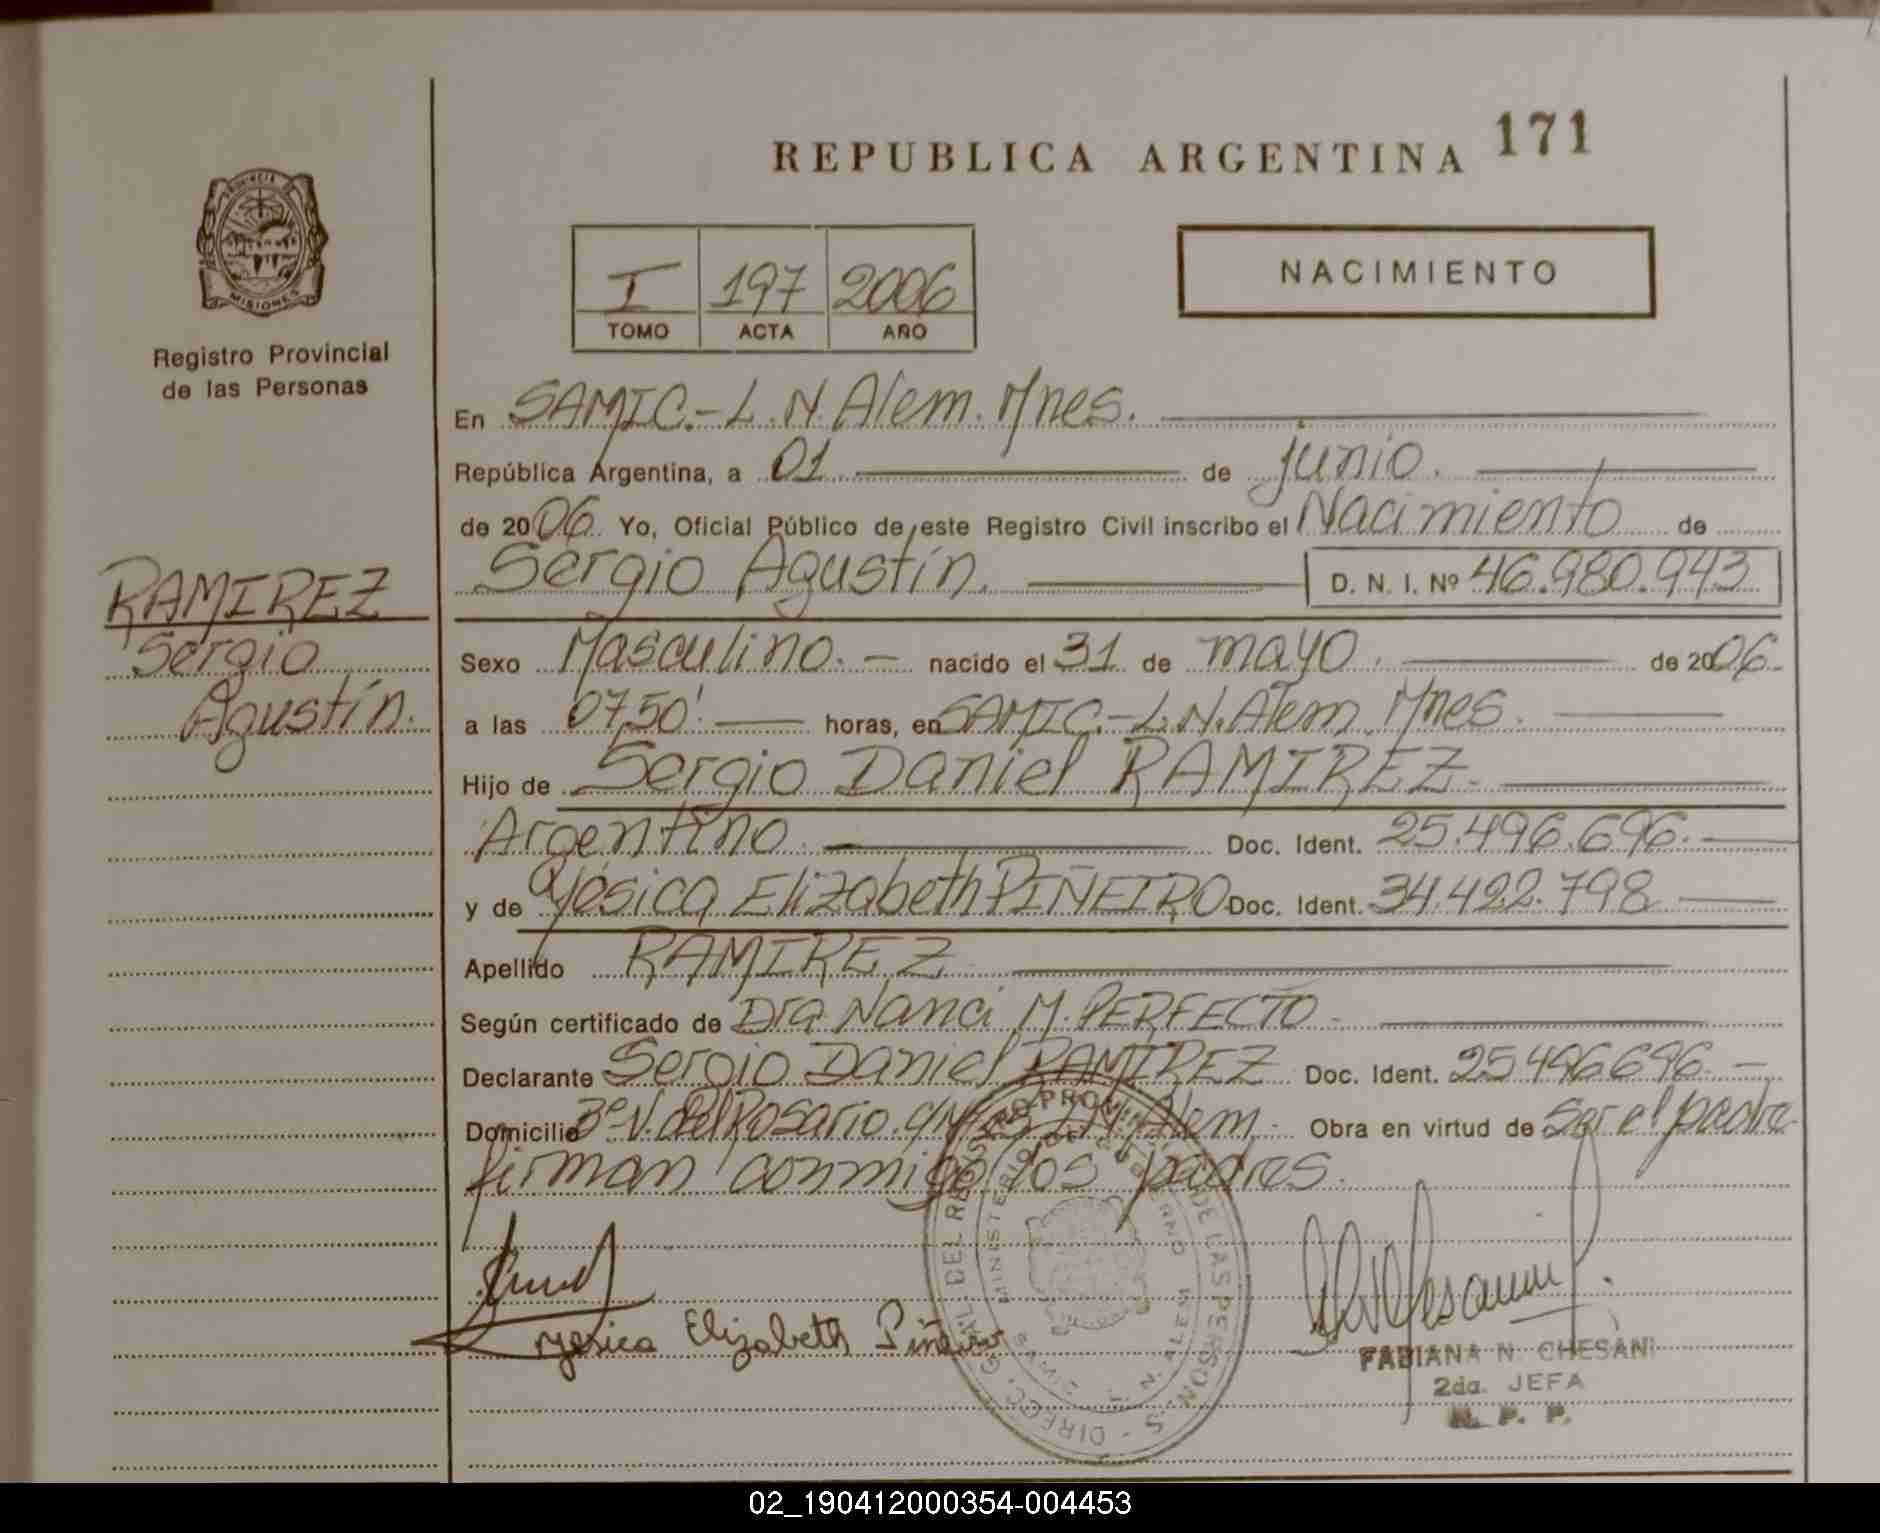 REPUBLICA ARGENTINA 171
PROVINCIA DE
MISIONES
Registro Provincial
de las Personas
I 197 2006
TOMO ACTA AÑO
NACIMIENTO
En SAMIC.- L. N. Alem. Mnes.
República Argentina, a 01 de junio.
de 2006. Yo, Oficial Público de este Registro Civil inscribo el Nacimiento de
Sergio Agustín. D. N. I. Nº 46.980.943
RAMIREZ
Sergio
Agustín.
Sexo Masculino. - nacido el 31 de mayo. de 2006.
a las 07,50'. horas, en SAMIC.- L. N. Alem. Mnes.
Hijo de Sergio Daniel RAMIREZ-
Argentino. Doc. Ident. 25.496.696.
y de Yésica Elizabeth PIÑEIRO Doc. Ident. 34.422.798
Apellido RAMIREZ
Según certificado de Dra Nanci M. PERFECTO-
Declarante Sergio Daniel RAMIREZ Doc. Ident. 25496696.-
Domicilio 3º N. del Rosario. L.N. Alem.- Obra en virtud de Ser el padre
firman conmigo los padres.
Yesica Elizabeth Piñeiro
DIRECC. GRAL. DEL REGISTRO PROV. DE LAS PERSONAS -
MINISTERIO DE GOBIERNO
L. N. ALEM
FABIANA N. CHESANI
2da. JEFA
R. P. P.
02_190412000354-004453